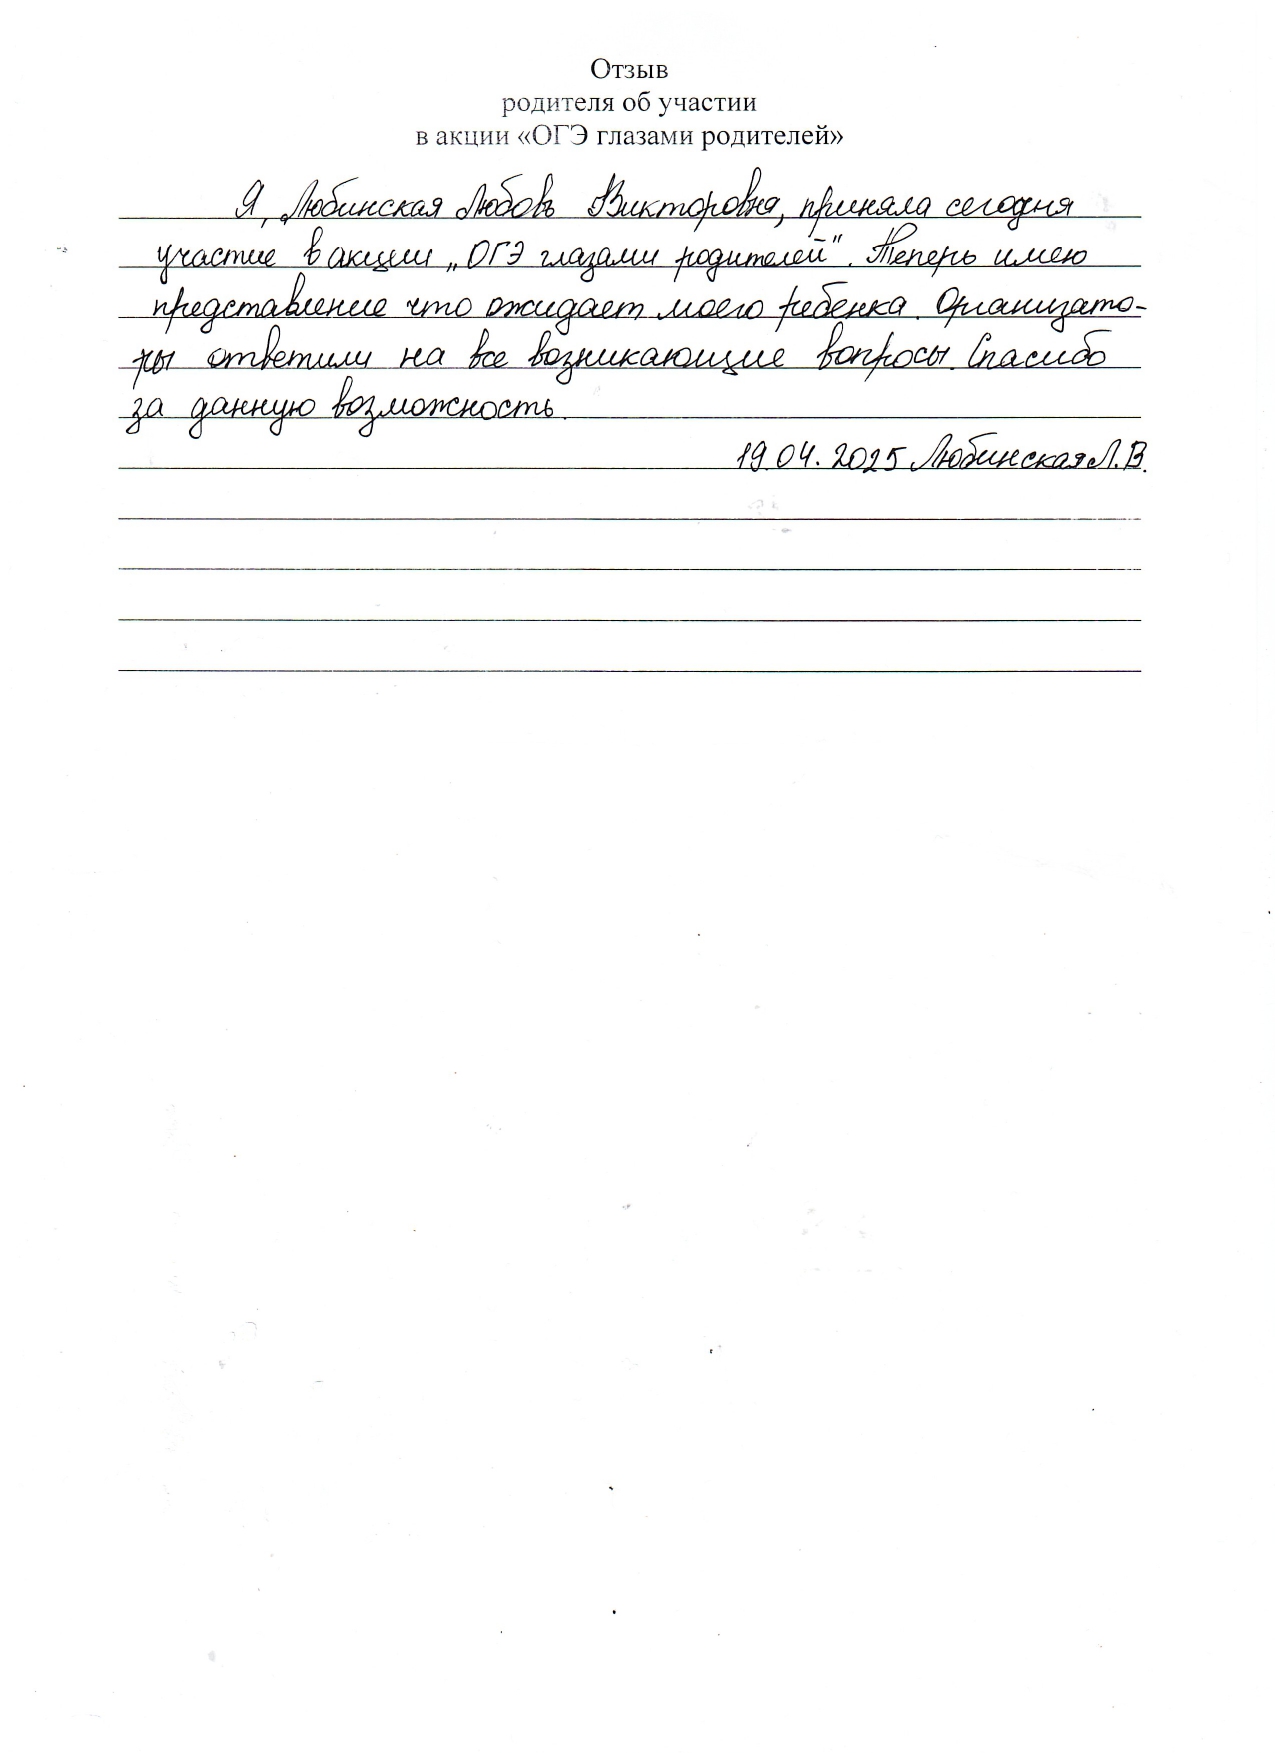 Отзыв
родителя об участии
в акции «ОГЭ глазами родителей»
Я, Любинская Любовь Викторовна, приняла сегодня
участие в акции „ОГЭ глазами родителей". Теперь имею
представление что ожидает моего ребенка. Организато-
ры ответили на все возникающие вопросы. Спасибо
за данную возможность.
19.04.2025 Любинская Л.В.